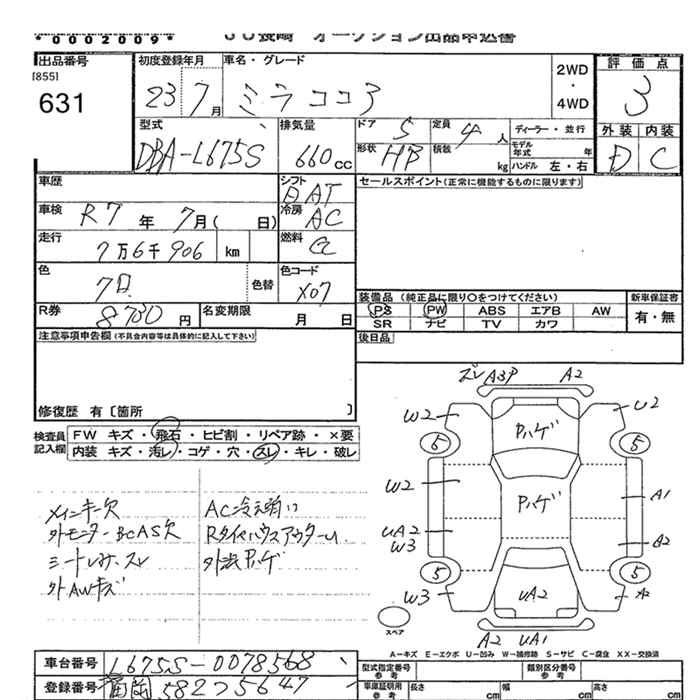 *0002009*
JU長崎 オークション出品申込書
出品番号
[855]
631
初度登録年月
23 7月
車名・グレード
ミラココア
2WD
・
4WD
評価点
3
外装 内装
D C
型式
DBA-L675S
排気量
660cc
ドア 5
定員 4人
ディーラー・並行
形状 HB
積載 kg
モデル年式 年
ハンドル 左・右
車歴
シフト
車検 R7年 7月( 日)
冷房 AC
走行 7万6千906 km
燃料
色
色替
色コード X07
R券 8730円
名変期限 月 日
セールスポイント(正常に機能するものに限ります)
装備品(純正品に限り○をつけてください)
PS PW ABS エアB AW
SR ナビ TV カワ
新車保証書
有・無
後日品
注意事項申告欄(不具合内容等は具体的に記入して下さい)
修復歴 有〔箇所 〕
検査員記入欄
FW キズ・飛石・ヒビ割・リペア跡・×要
内装 キズ・汚レ・コゲ・穴・スレ・キレ・破レ
メインキー欠
外モニター BCAS欠
シートシミ、スレ
外AWキズ
RタイヤハウスアウターU
ズレ A3P A2
W2 U2
Pハゲ
5 5
W2
Pハゲ
A1
UA2
W3
A2
5 5
W3
UA2
A2
A2 UA1
スペア
A-キズ E-エクボ U-凹み W-補修跡 S-サビ C-腐食 XX-交換済
車台番号 L675S-0078568
登録番号 582 5647
型式指定番号 参考
類別区分番号 参考
車庫証明用 参考
長さ cm
幅 cm
高さ cm